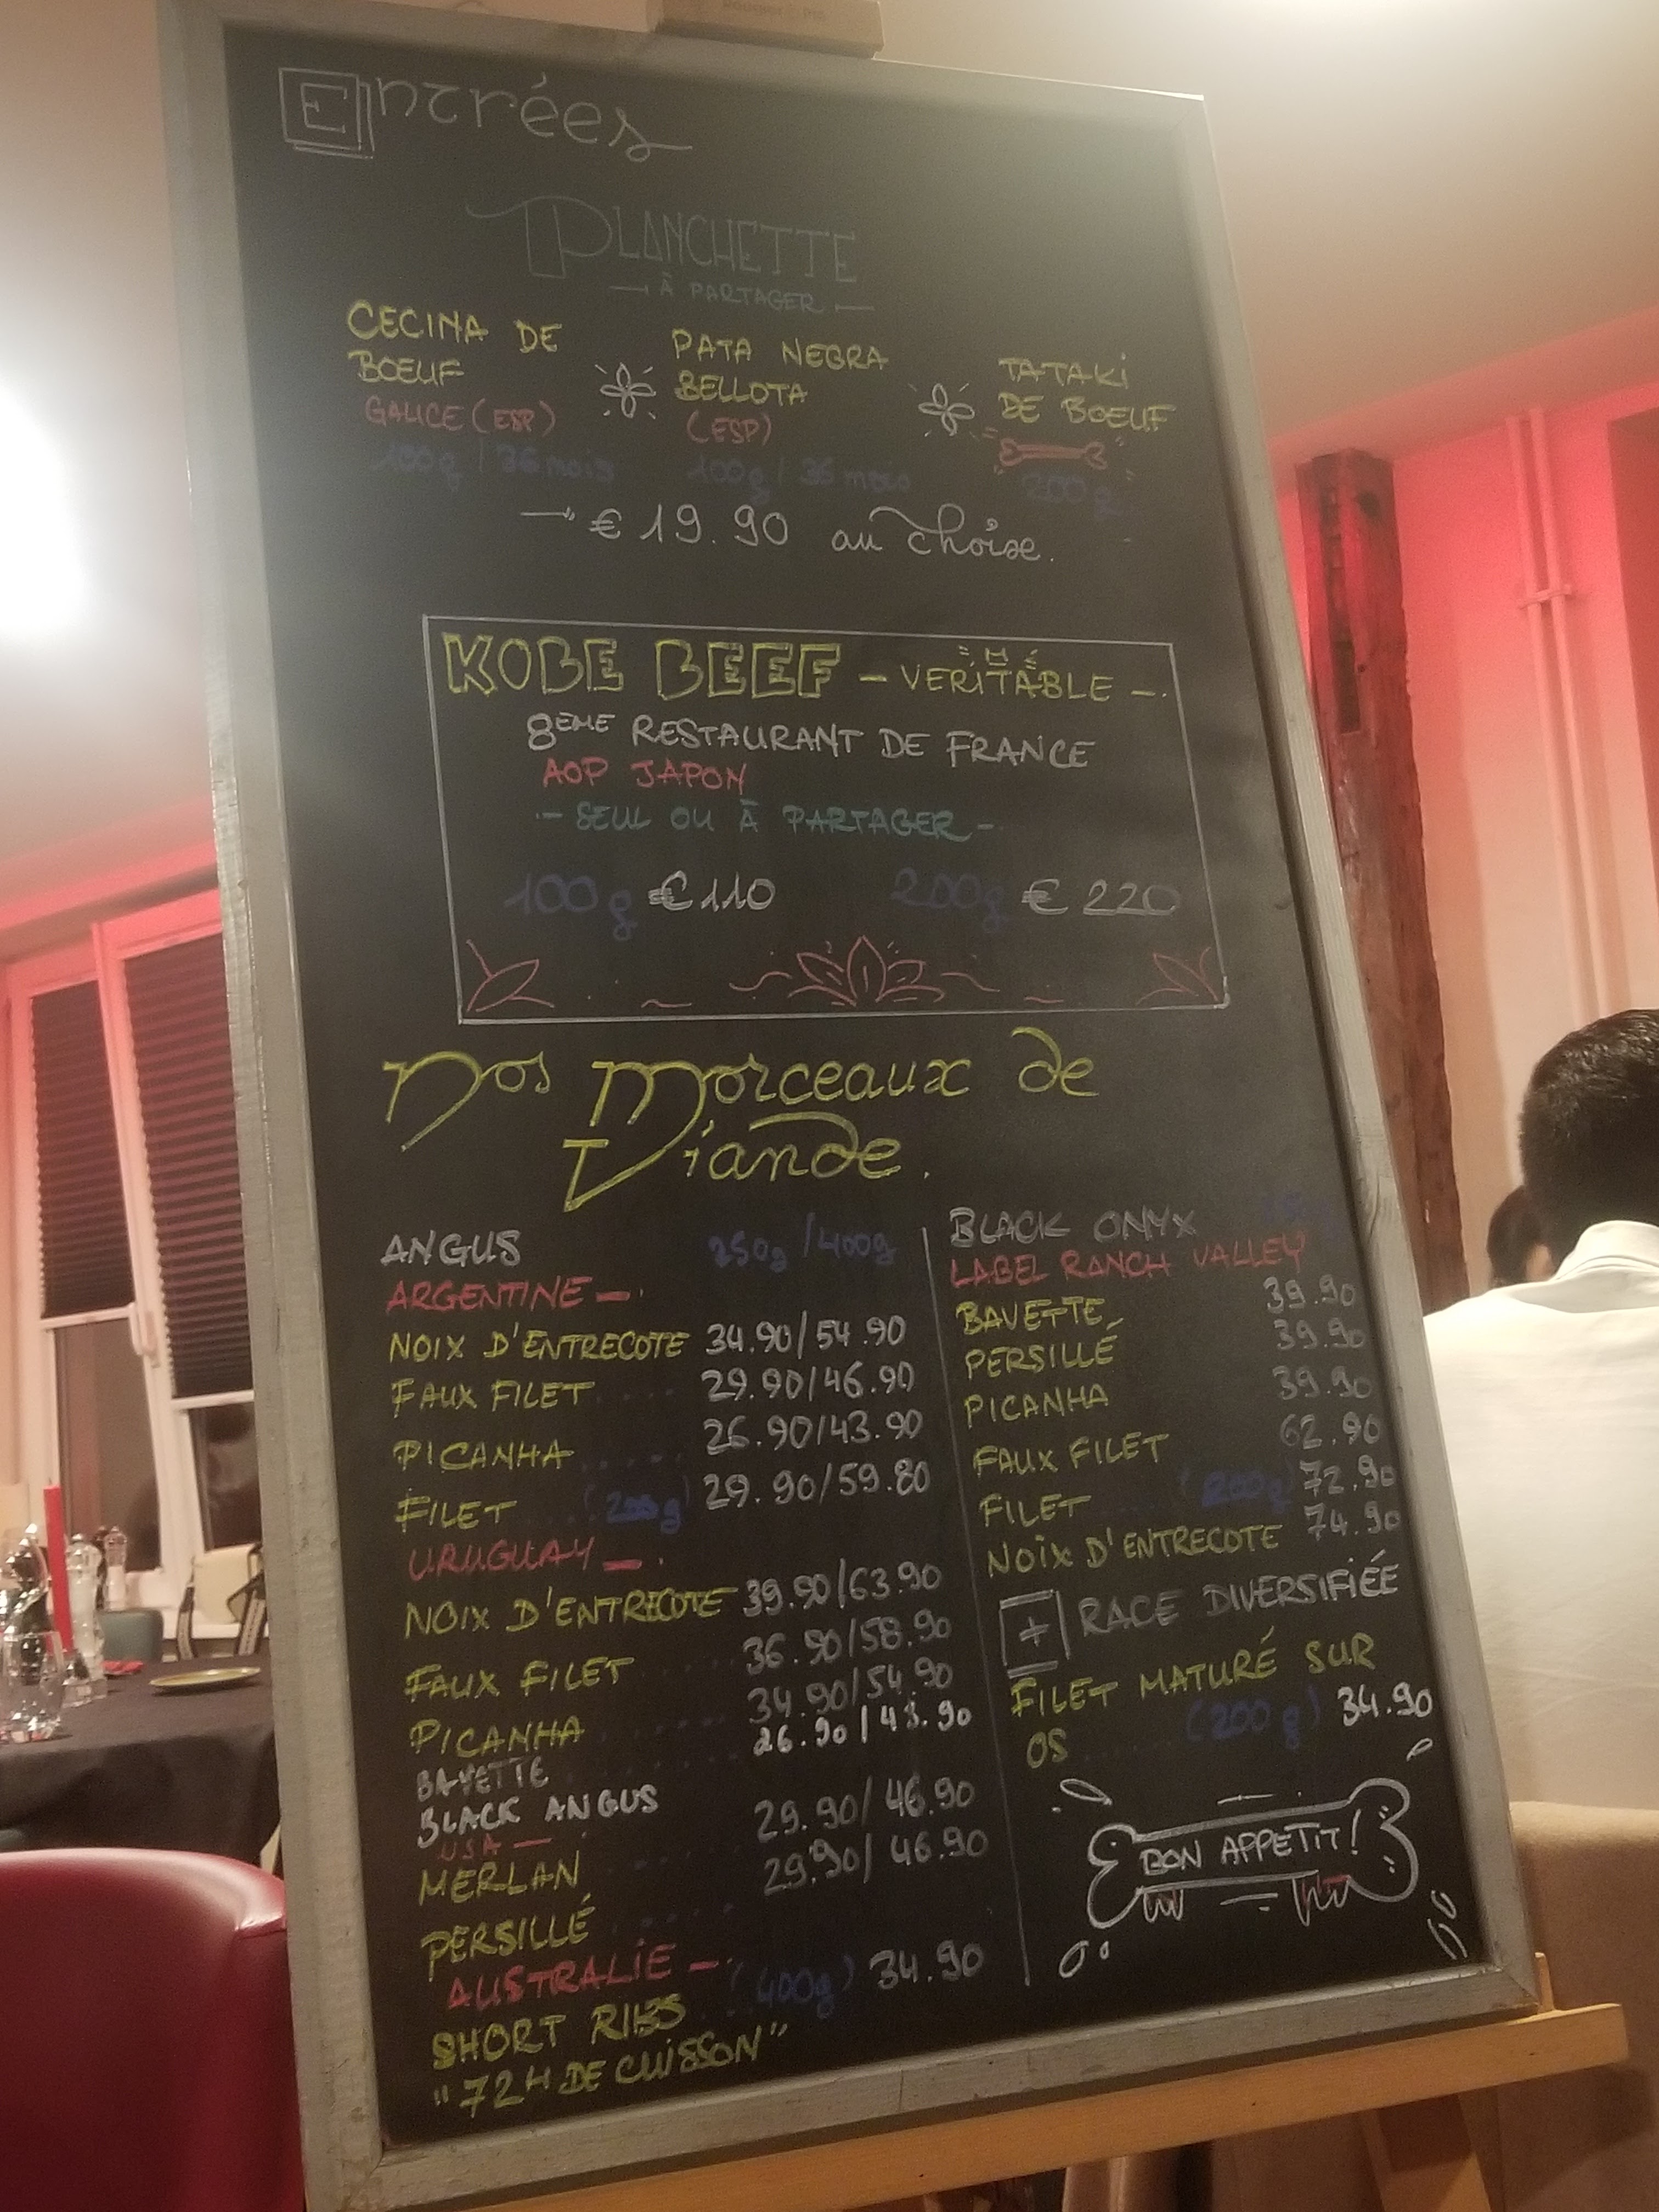 Entrées
PLANCHETTE
À PARTAGER
CECINA DE BOEUF
GALICE (ESP)
100g / 36 mois
PATA NEGRA BELLOTA
(ESP)
100g / 36 mois
TATAKI DE BOEUF
200g
€ 19.90 au choix.
KOBE BEEF - VERITABLE -
8EME RESTAURANT DE FRANCE
AOP JAPON
- SEUL OU À PARTAGER -
100g €110 200g € 220
Nos Morceaux de
Viande.
ANGUS 250g / 400g
ARGENTINE -
NOIX D'ENTRECOTE 34.90/54.90
FAUX FILET 29.90/46.90
PICANHA 26.90/43.90
FILET (200g) 29.90/59.80
URUGUAY -
NOIX D'ENTRECOTE 39.90/63.90
FAUX FILET 36.90/58.90
PICANHA 34.90/54.90
BAVETTE 26.90/43.90
BLACK ANGUS
USA -
MERLAN 29.90/46.90
PERSILLÉ 29.90/46.90
AUSTRALIE -
SHORT RIBS (400g) 34.90
"72H DE CUISSON"
BLACK ONYX
LABEL RANCH VALLEY
BAVETTE 39.90
PERSILLÉ 39.90
PICANHA 39.90
FAUX FILET 62.90
FILET (200g) 72.90
NOIX D'ENTRECOTE 74.90
+ RACE DIVERSIFIÉE
FILET MATURÉ SUR
OS (200g) 34.90
BON APPETIT!